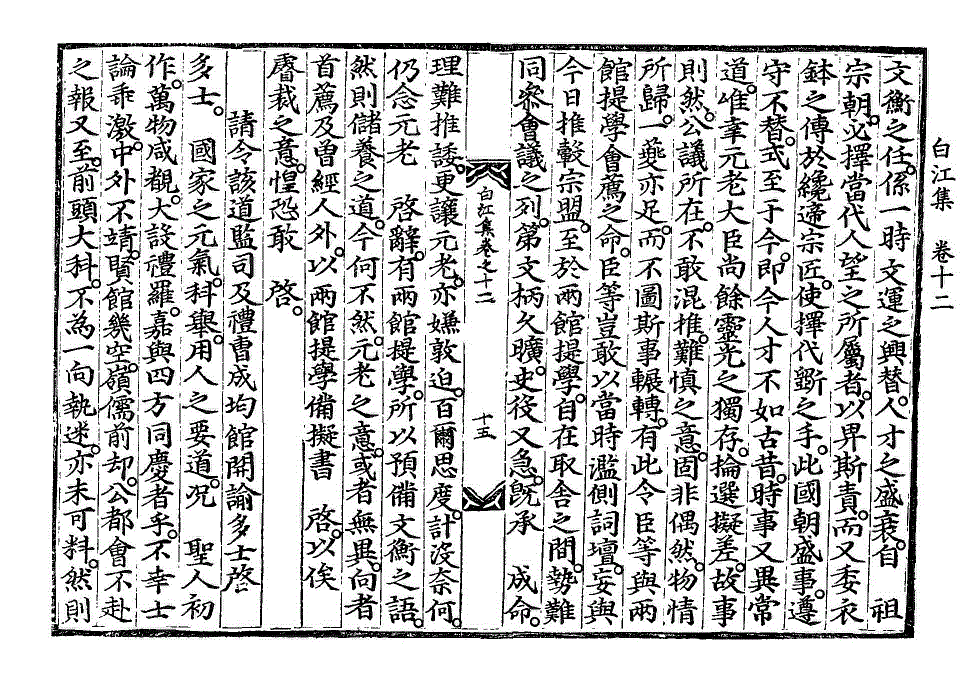 白江集 卷十二
文衡之任。係一時文運之興替。人才之盛衰。自 祖
宗朝。必擇當代人望之所屬者。以畀斯責。而又委衣
鉢之傳於纔遞宗匠。使擇代斲之手。此國朝盛事。遵
守不替。式至于今。卽今人才不如古昔。時事又異常
道。唯幸元老大臣尙餘靈光之獨存。掄選擬差。故事
則然。公議所在。不敢混推。難愼之意。固非偶然。物情
所歸。一夔亦足。而不圖斯事輾轉。有此令臣等與兩
館提學會薦之命。臣等豈敢以當時濫側詞壇。妄與
今日推轂宗盟。至於兩館提學。自在取舍之間。勢難
同參會議之列。第文柄久曠。史役又急。旣承 成命。
白江集卷之十二 十五
理難推諉。更讓元老。亦嫌敦迫。百爾思度。計沒奈何。
仍念元老 啓辭。有兩館提學。所以預備文衡之語。
然則儲養之道。今何不然。元老之意。或者無異。向者
首薦及曾經人外。以兩館提學備擬書 啓。以俟
睿裁之意。惶恐敢 啓。
請令該道監司及禮曹成均館開諭多士啓
多士。 國家之元氣。科擧。用人之要道。況 聖人初
作。萬物咸覩。大設禮羅。嘉與四方同慶者乎。不幸士
論乖激。中外不靖。賢館幾空。嶺儒前却。公都會不赴
之報又至。前頭大科。不爲一向執迷。亦未可料。然則